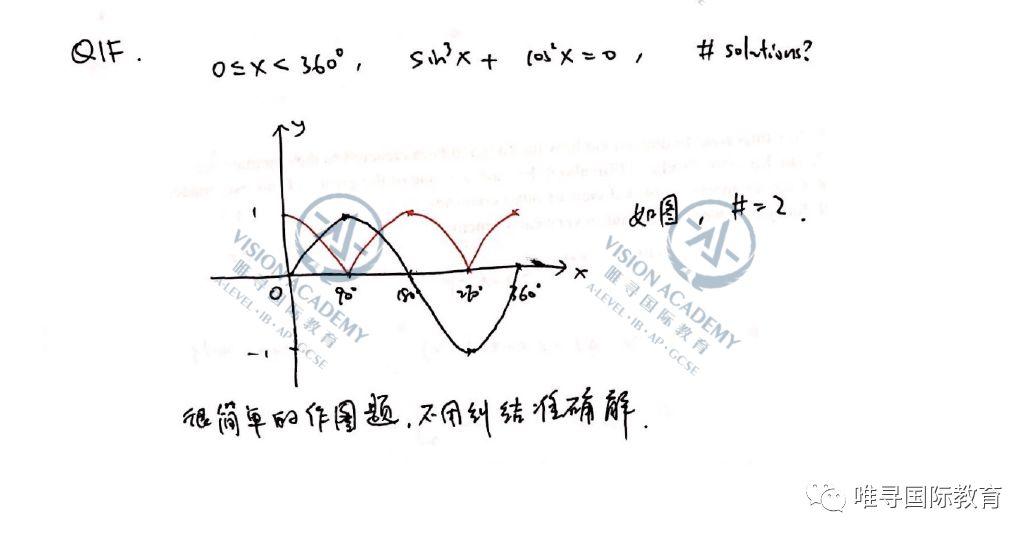 Q1F. 0≤x<360°, sin³x + cos²x=0, # solutions?
y
1
如图, #=2.
0 90° 180° 270° 360° x
-1
VISION ACADEMY
唯寻国际教育
A-LEVEL·IB·AP·GCSE
VISION ACADEMY
唯寻国际教育
A-LEVEL·IB·AP·GCSE
很简单的作图题,不用纠结准确解.
唯寻国际教育